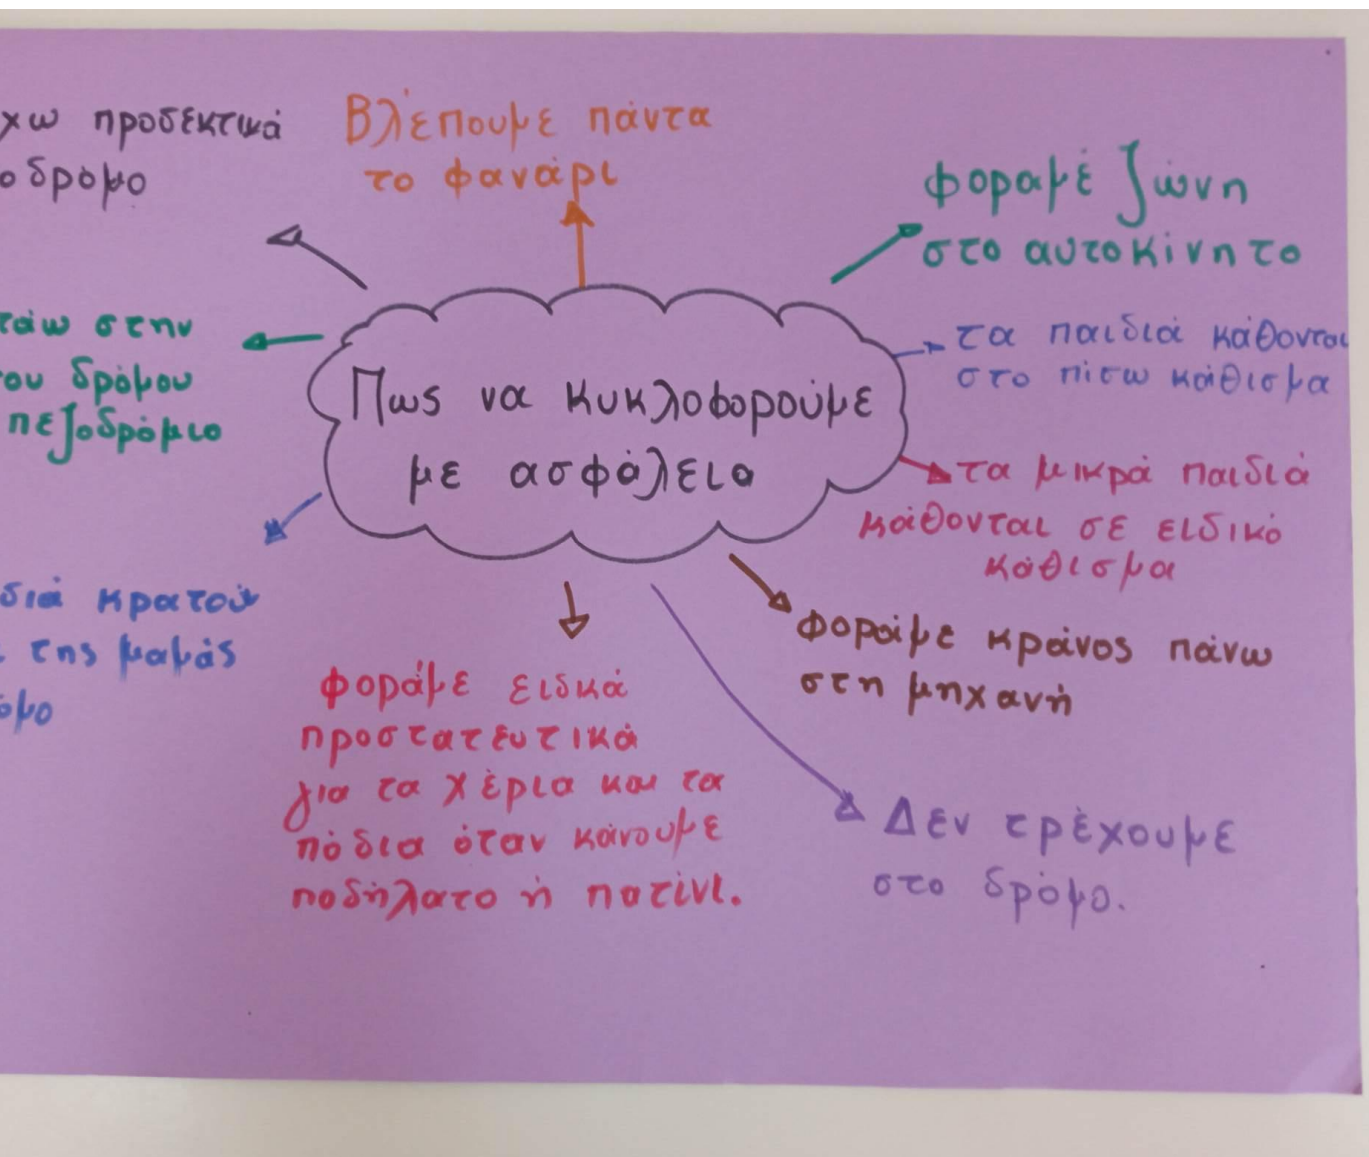 χω προσεκτικά
ο δρόμο
Βλέπουμε πάντα
το φανάρι
φοράμε ζώνη
στο αυτοκίνητο
τάω στην
ου δρόμου
πεζοδρόμιο
Πως να κυκλοφορούμε
με ασφάλεια
τα παιδιά κάθονται
στο πίσω κάθισμα
τα μικρά παιδιά
κάθονται σε ειδικό
κάθισμα
διά κρατού
της μαμάς
όμο
φοράμε ειδκά
προστατευτικά
για τα χέρια και τα
πόδια όταν κάνουμε
ποδήλατο ή πατίνι.
φοράμε κράνος πάνω
στη μηχανή
Δεν τρέχουμε
στο δρόμο.